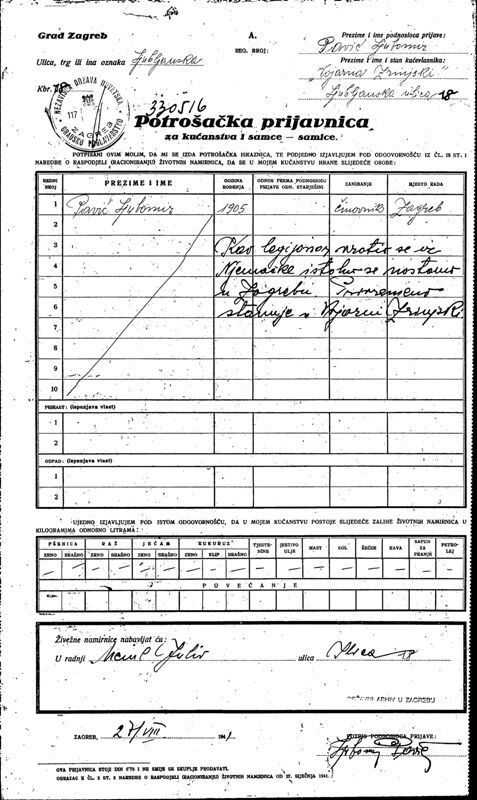 Grad Zagreb
A.
REG. BROJ:
Prezime i ime podnosioca prijave:
Pavić Ljubomir
Ulica, trg ili ina oznaka Ljubljanska
Prezime i ime i stan kućevlasnika:
"Vojarna Zrinjski"
Kbr. 18
Ljubljanska ulica 18
NEZAVISNA DRŽAVA HRVATSKA
ZAGREB
GRADSKO POGLAVARSTVO
117
330516
Potrošačka prijavnica
za kućanstva i samce – samice.
POTPISANI OVIM MOLIM, DA MI SE IZDA POTROŠAČKA ISKAZNICA, TE PODJEDNO IZJAVLJUJEM POD ODGOVORNOŠĆU IZ ČL. 18 ST. 1
NAREDBE O RASPODJELI (RACIONIRANJU) ŽIVOTNIH NAMIRNICA, DA SE U MOJEM KUĆANSTVU HRANE SLIJEDEĆE OSOBE:
REDNI BROJ
PREZIME I IME
GODINA ROĐENJA
ODNOS PREMA PODNOSIOCU PRIJAVE ODN. STARJEŠINI
ZANIMANJE
MJESTO RADA
1 Pavić Ljubomir 1905 činovnik Zagreb
2
3 Kao legijonar vratio se iz
4 Njemačke
5 u Zagrebu. Privremeno
6 stanuje u Vojarni Zrinjski.
7
8
9
10
PRIRAST: (ispunjava vlast)
1
2
OTPAD: (ispunjava vlast)
1
2
UJEDNO IZJAVLJUJEM POD ISTOM ODGOVORNOŠĆU, DA U MOJEM KUĆANSTVU POSTOJE SLIJEDEĆE ZALIHE ŽIVOTNIH NAMIRNICA U
KILOGRAMIMA ODNOSNO LITRAMA:
PŠENICA RAŽ JEČAM KUKURUZ TJESTENINE JESTIVO ULJE MAST SOL ŠEĆER KAVA SAPUN ZA PRANJE PETROLEJ
ZRNO BRAŠNO ZRNO BRAŠNO ZRNO BRAŠNO ZRNO KLIP BRAŠNO
— — — — — — — — — — — — — — — — —
POVEĆANJE
Živežne namirnice nabavljat ću:
U radnji Meinl Julio ulica Ilica 18
DRŽAVNI ARHIV U ZAGREBU
ZAGREB, 27/VIII. 1941.
POTPIS PODNOSIOCA PRIJAVE:
Ljubomir Pavić
OVA PRIJAVNICA STOJI DIN 0'75 I NE SMIJE SE SKUPLJE PRODAVATI.
OBRAZAC K ČL. 2 ST. 3 NAREDBE O RASPODJELI (RACIONIRANJU) ŽIVOTNIH NAMIRNICA OD 27. SIJEČNJA 1941.